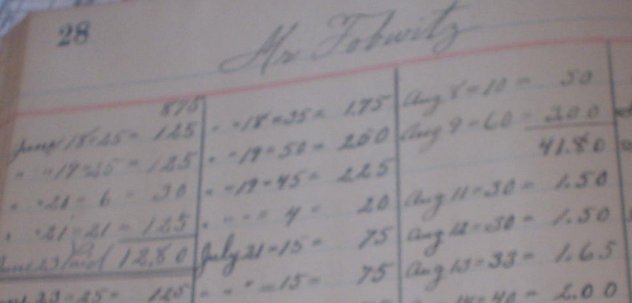 28
Mr Fobwitz
875
June 18 = 25 = 125
" " 19 = 25 = 125
" " 21 = 6 = 30
" " 21 = 21 = 125
June 23 Paid 12,80
23 = 25 = 125
" " 18 = 35 = 1,75
" " 19 = 50 = 250
" " 19 = 45 = 225
" " " = 4 = 20
July 21 = 15 = 75
" " " = 15 = 75
Aug 8 = 10 = 50
Aug 9 = 60 = 300
41.80
Aug 11 = 30 = 1.50
Aug 12 = 30 = 1.50
Aug 13 = 33 = 1.65
14 = 40 = 2.00